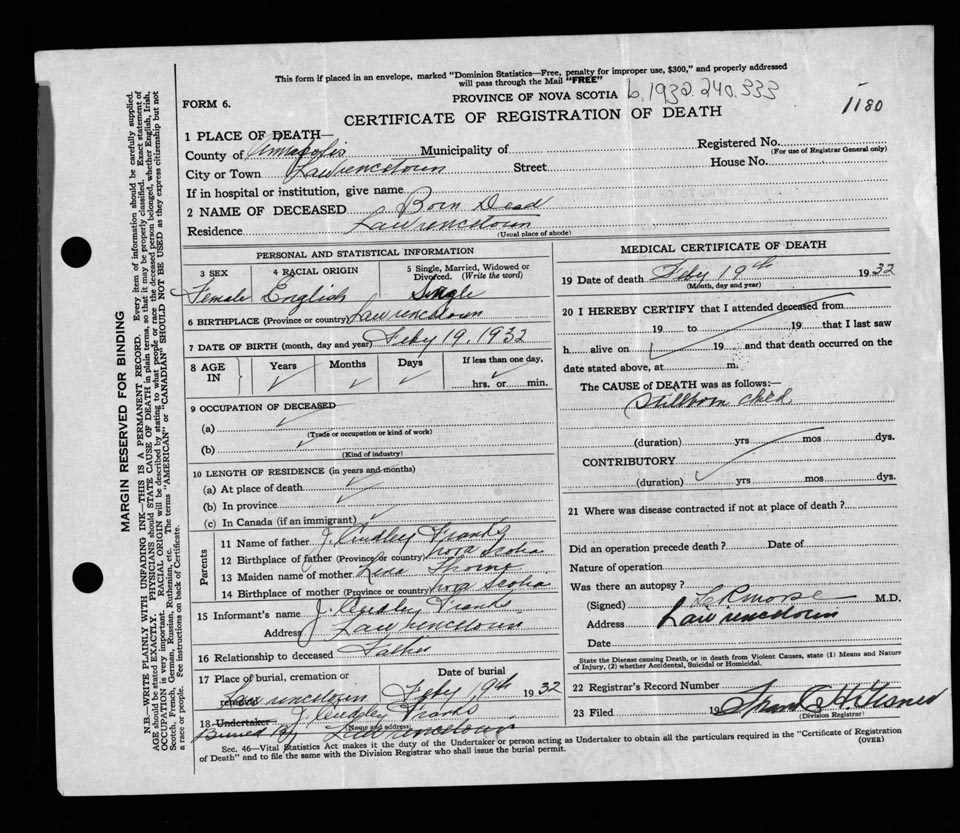 This form if placed in an envelope, marked "Dominion Statistics—Free, penalty for improper use, $300," and properly addressed
will pass through the Mail "FREE"
FORM 6.
PROVINCE OF NOVA SCOTIA 6.1932.240.333
1180
CERTIFICATE OF REGISTRATION OF DEATH
1 PLACE OF DEATH—
County of Annapolis Municipality of Registered No.
(For use of Registrar General only)
City or Town Lawrencetown Street House No.
If in hospital or institution, give name
2 NAME OF DECEASED Born Dead
Residence Lawrencetown
(Usual place of abode)
PERSONAL AND STATISTICAL INFORMATION
3 SEX 4 RACIAL ORIGIN 5 Single, Married, Widowed or Divorced. (Write the word)
Female English Single
6 BIRTHPLACE (Province or country) Lawrencetown
7 DATE OF BIRTH (month, day and year) Feby 19, 1932
8 AGE IN Years Months Days If less than one day,
hrs. or min.
9 OCCUPATION OF DECEASED
(a)
(Trade or occupation or kind of work)
(b)
(Kind of industry)
10 LENGTH OF RESIDENCE (in years and months)
(a) At place of death
(b) In province
(c) In Canada (if an immigrant)
Parents
11 Name of father J. Franks
12 Birthplace of father (Province or country) Nova Scotia
13 Maiden name of mother
14 Birthplace of mother (Province or country) Nova Scotia
15 Informant's name J. Franks
Address Lawrencetown
16 Relationship to deceased Father
17 Place of burial, cremation or removal Date of burial
Lawrencetown Feby 19th 1932
18 Undertaker J. Franks
(Name and address)
Buried by Lawrencetown
MEDICAL CERTIFICATE OF DEATH
19 Date of death Feby 19th 1932
(Month, day and year)
20 I HEREBY CERTIFY that I attended deceased from
19 to 19 that I last saw
h alive on 19 and that death occurred on the
date stated above, at m.
The CAUSE of DEATH was as follows:—
Stillborn child
(duration) yrs mos dys.
CONTRIBUTORY
(duration) yrs mos dys.
21 Where was disease contracted if not at place of death?
Did an operation precede death? Date of
Nature of operation
Was there an autopsy?
(Signed) Morse M.D.
Address Lawrencetown
Date
State the Disease causing Death, or in death from Violent Causes, state (1) Means and Nature
of Injury, (2) whether Accidental, Suicidal or Homicidal.
22 Registrar's Record Number
23 Filed 19 Frank H.
(Division Registrar)
Sec. 46—Vital Statistics Act makes it the duty of the Undertaker or person acting as Undertaker to obtain all the particulars required in the "Certificate of Registration
of Death" and to file the same with the Division Registrar who shall issue the burial permit.
(OVER)
MARGIN RESERVED FOR BINDING
N.B.—WRITE PLAINLY WITH UNFADING INK—THIS IS A PERMANENT RECORD. Every item of information should be carefully supplied.
AGE should be stated EXACTLY. PHYSICIANS should STATE CAUSE OF DEATH in plain terms, so that it may be properly classified. Exact statement of
OCCUPATION is very important. RACIAL ORIGIN will be described by stating to what people or race the deceased person belonged, whether English, Irish,
Scotch, French, German, Russian, Ruthenian, etc. The terms "AMERICAN" or "CANADIAN" SHOULD NOT BE USED as they express citizenship but not
a race or people. See instructions on back of Certificate.